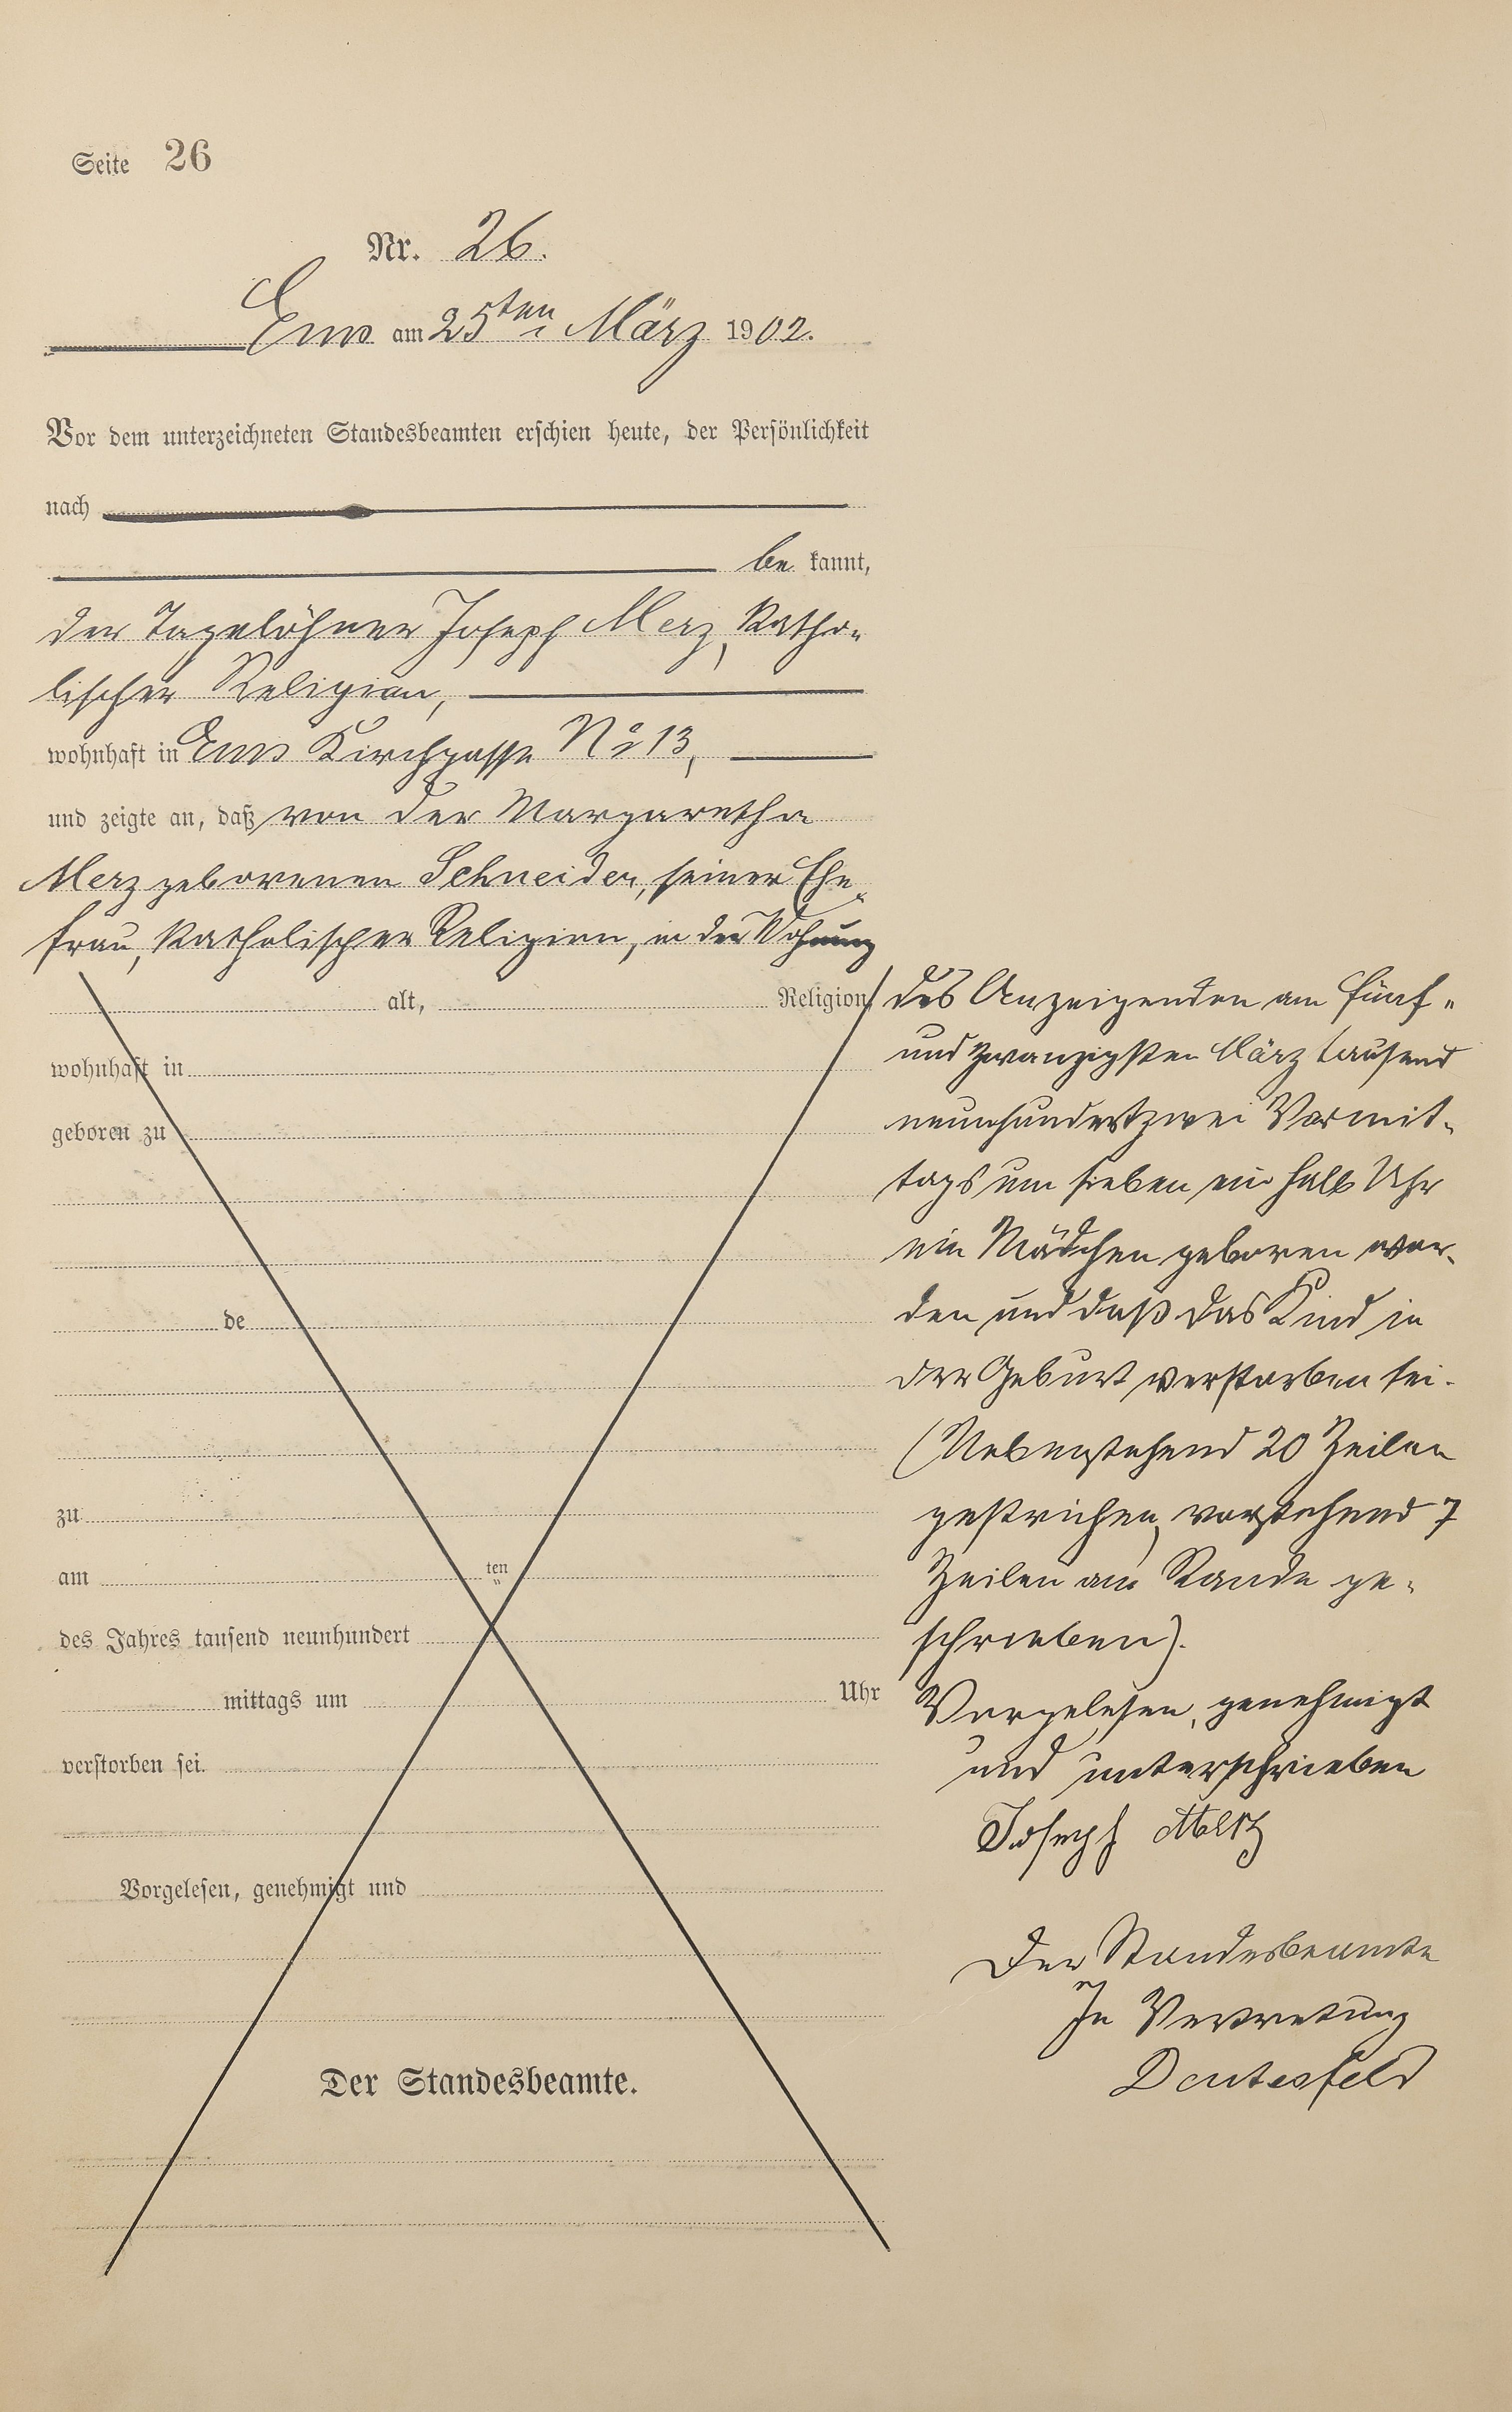 Seite 26
Nr. 26.
Ems am 25ten März 1902.
Vor dem unterzeichneten Standesbeamten erschien heute, der Persönlichkeit
nach
be kannt,
der Tagelöhner Joseph Merz, katho„
lischer Religion,
wohnhaft in Ems Kirchgasse No 13,
und zeigte an, daß von der Margaretha
Merz geborenen Schneider, seiner Ehe„
frau, katholischer Religion, in der Wohnung
alt, Religion,
wohnhaft in
geboren zu
de
zu
am ten
des Jahres tausend neunhundert
mittags um Uhr
verstorben sei.
Vorgelesen, genehmigt und
Der Standesbeamte.
des Anzeigenden am fünf„
und zwanzigsten März tausend
neunhundertzwei Vormit„
tags um sieben ein halb Uhr
ein Mädchen geboren wor„
den und daß das Kind in
der Geburt verstorben sei.
(Nebenstehend 20 Zeilen
gestrichen, vorstehend 7
Zeilen am Rande ge„
schrieben).
Vorgelesen, genehmigt
und unterschrieben
Joseph Mertz
Der Standesbeamte
In Vertretung